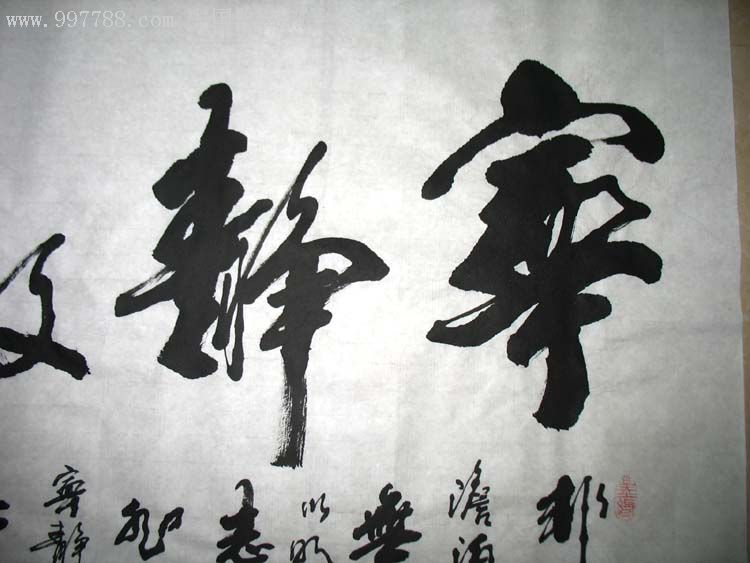 www.997788.com
寧靜
非
澹泊
無
以明
志
非
寧靜